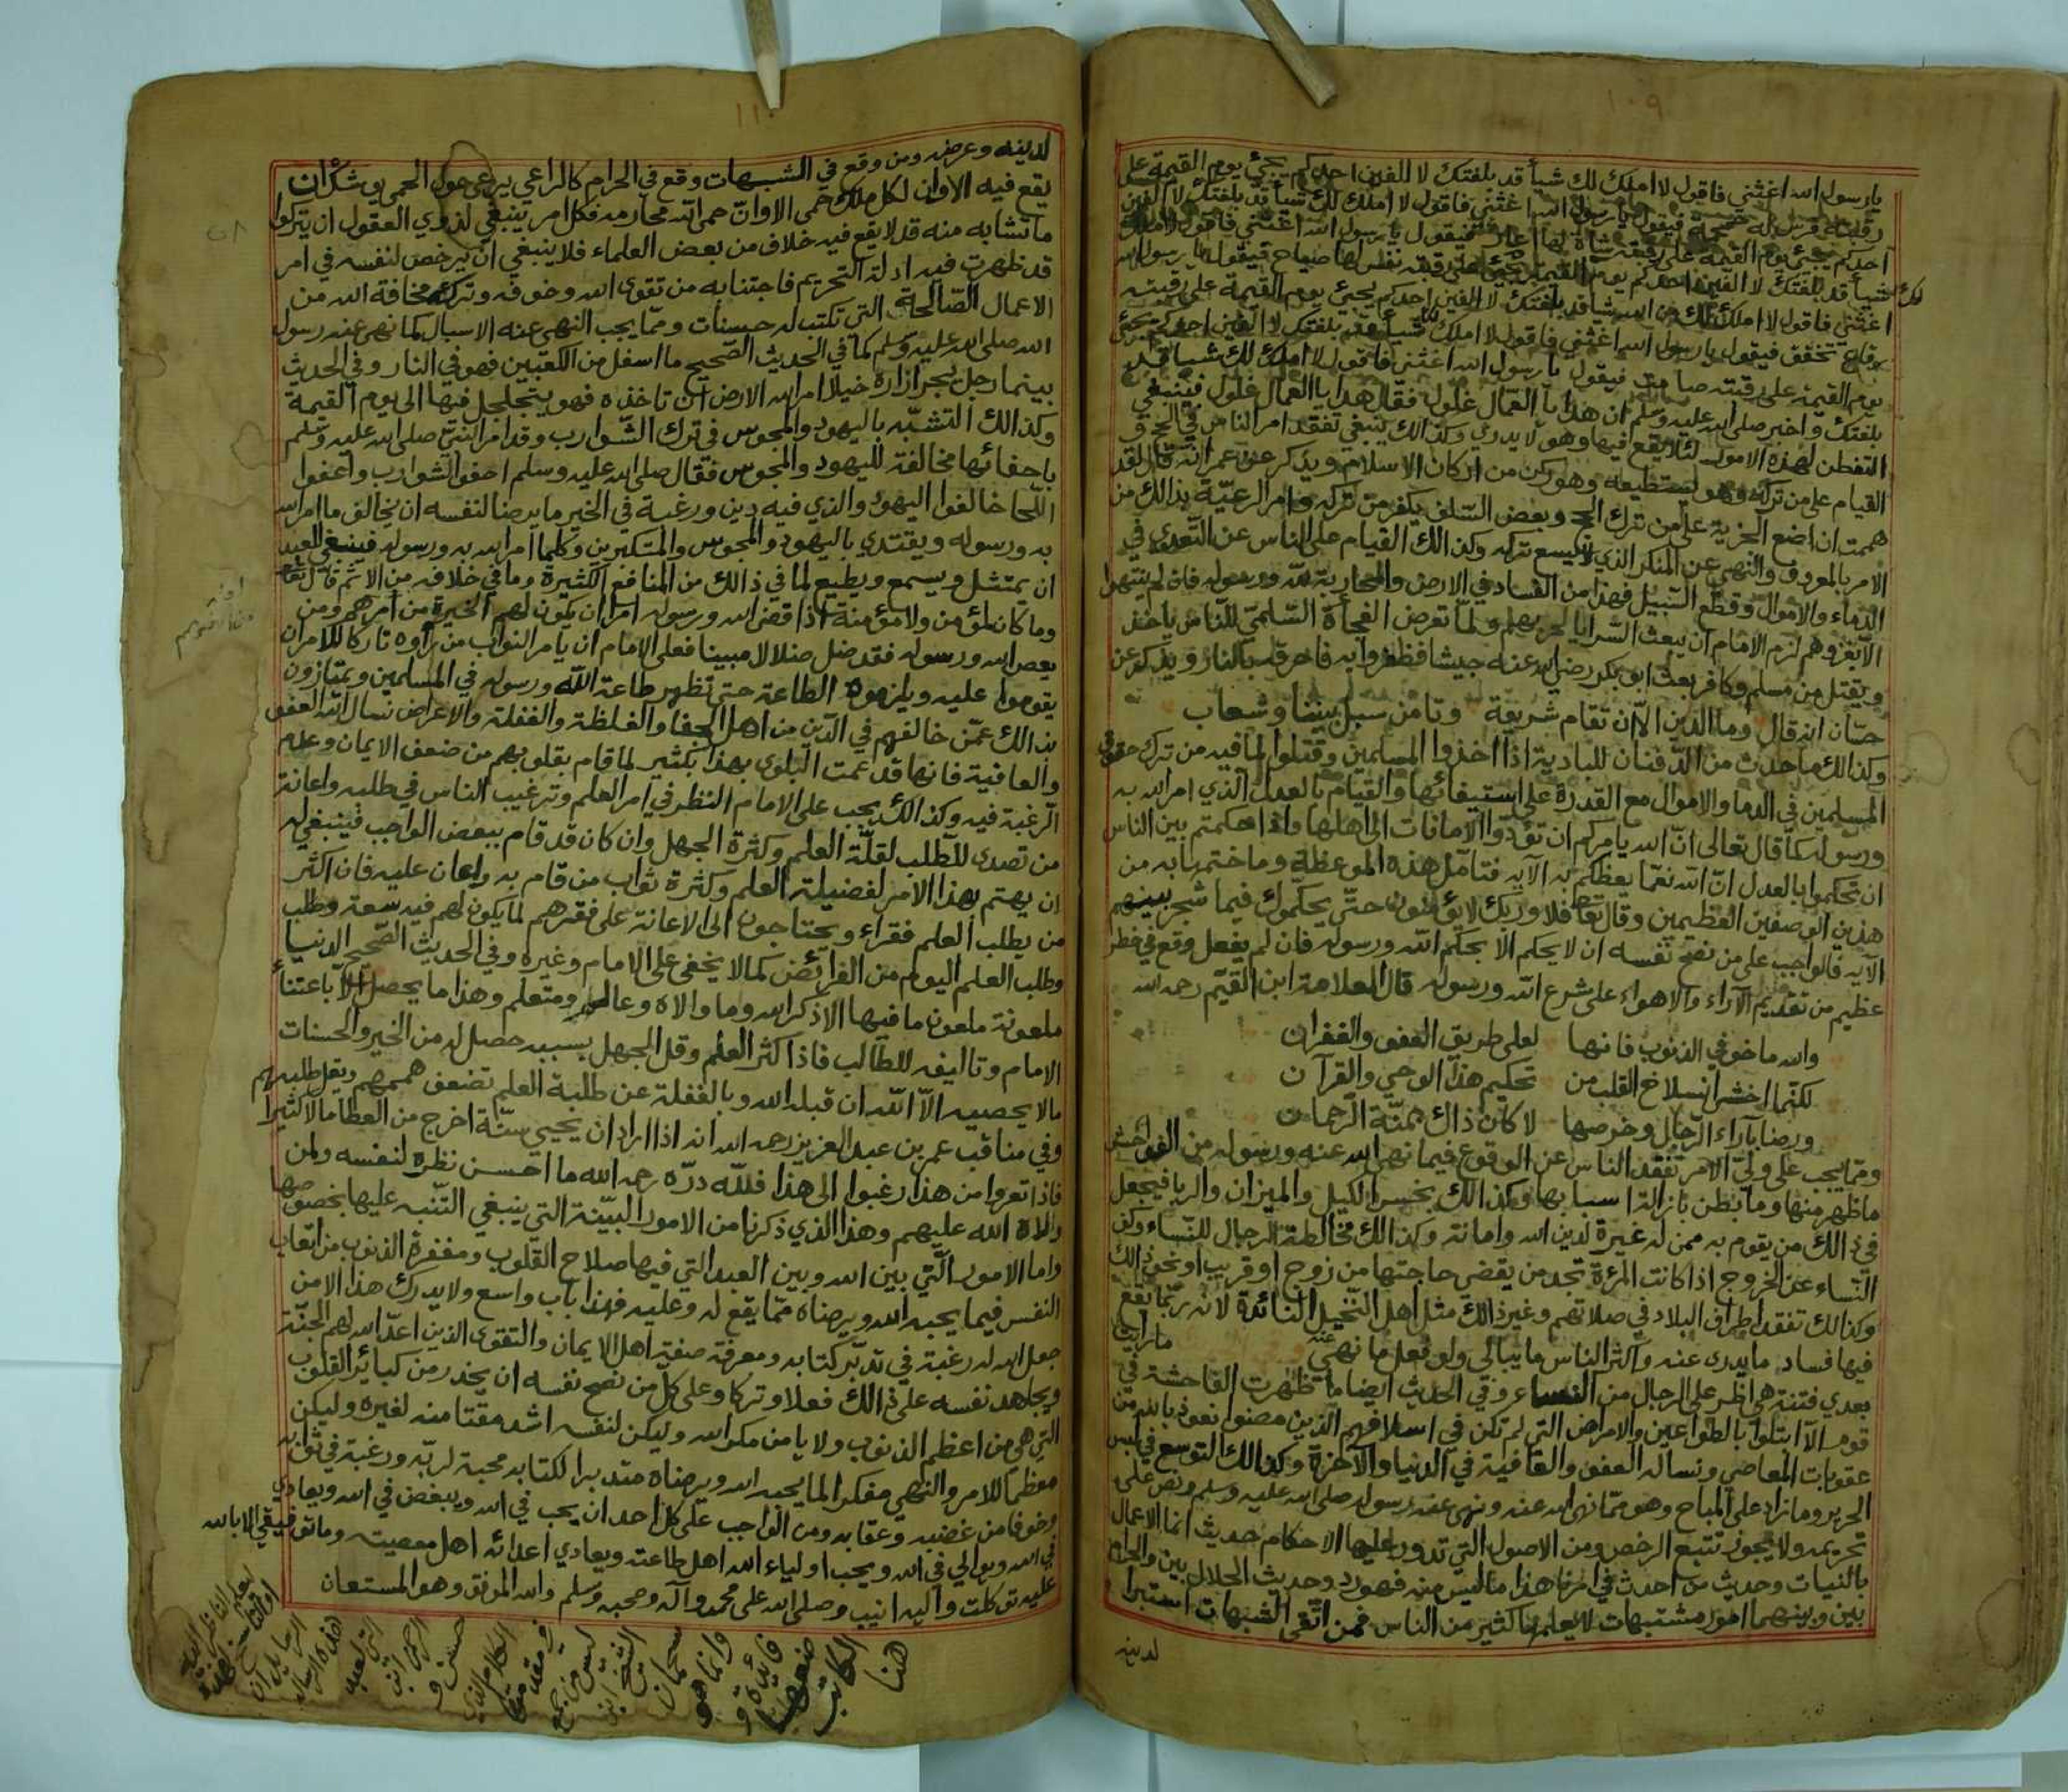 ١٠٩
يارسول الله اغثني فاقول لا املك لك شيأ قد بلغتك لا الفين احدكم يجئ يوم القيمة على
رقبته فرس له حمحمة فيقول يا رسول الله اغثني فاقول لا املك لك شيأ قد بلغتك لا الفين
احدكم يجئ يوم القيمة على رقبته شاة لها فيقول يا رسول الله اغثني فاقول لا املك
لك شيأ قد بلغتك لا الفين احدكم يوم القيمة يجئ على رقبته نفس لها صياح فيقول يا رسول الله
اغثني فاقول لا املك لك من الله شيا قد بلغتك لا الفين احدكم يجئ يوم القيمة على رقبته
رقاع تخفق فيقول يا رسول الله اغثني فاقول لا املك لك شيأ قد بلغتك لا الفين احدكم يجئ
يوم القيمة على رقبته صامت فيقول يا رسول الله اغثني فاقول لا املك لك شيا قد
بلغتك واخبر صلى الله عليه وسلم ان هدايا العمال غلول فقال هدايا العمال غلول فينبغي
التفطن لهذه الامور لئلا يقع فيها وهو لا يدري وكذالك ينبغي تفقد امر الناس في الحج و
القيام على من تركه وهو يستطيعه وهو ركن من اركان الاسلام ويذكر عن عمر انه قال لقد
هممت ان اضع الجزية على من ترك الحج وبعض السلف يكفر من تركه وامر الرعيّة بذالك من
الامر بالمعروف والنهي عن المنكر الذي لا يسع تركه وكذالك القيام على الناس عن التعدي في
الدماء والاموال وقطع السبيل فهذا من الفساد في الارض والمحاربة لله ورسوله فان لم ينتهوا
الا بغزوهم لزم الامام ان يبعث السرايا لحربهم ولما تعرض الفجأة السّلمي للناس ياخذ
ويقتل من مسلم وكافر بعث ابو بكر رضي الله عنه جيشا فظفروا به فاحرقه بالنار ويذكر عن
حسّان انه قال وما الدين الا ان تقام شريعة وتامن سبل بيننا وشعاب
وكذالك ما حدث من الدفنان للبادية اذا اخذوا المسلمين وقتلوا لما فيه من ترك حقوق
المسلمين في الدما والاموال مع القدرة على استيفائها والقيام بالعدل الذي امر الله به
ورسوله كما قال تعالى انّ الله يامركم ان تؤدّوا الامانات الى اهلها واذا حكمتم بين الناس
ان تحكموا بالعدل انّ الله نعمّا يعظكم به الآيه فتامّل هذه الموعظة وما ختمها به من
هذين الوصفين العظيمين وقال تعا فلا وربك لا يؤمنون حتّى يحكموك فيما شجر بينهم
الآيه فالواجب على من نصح نفسه ان لا يحكم الا بحكم الله ورسوله فان لم يفعل وقع في خطر
عظيم من تقديم الآراء والاهواء على شرع الله ورسوله قال العلامة ابن القيّم رحمه الله
والله ما خوفي الذنوب فانها لعلى طريق العفو والغفران
لكنّما اخشى انسلاخ القلب من تحكيم هذا الوحي والقرآن
ورضا بآراء الرّجال وخرصها لا كان ذاك بمنّة الرّحمان
ومما يجب على وليّ الامر تفقد الناس عن الوقوع فيما نهى الله عنه ورسوله من الفواحش
ما ظهر منها وما بطن بازالة اسبابها وكذالك بخس الكيل والميزان والربا فيجعل
في ذالك من يقوم به ممن له غيرة لدين الله وامانة وكذالك مخالطة الرجال للنساء وكف
النّساء عن الخروج اذا كانت المرءة تجد من يقضي حاجتها من زوج او قريب او نحو ذالك
وكذالك تفقد اطراف البلاد في صلاتهم وغير ذالك مثل اهل النّخيل النائدة لانه ربّما يقع
فيها فساد ما يدرى عنه واكثر الناس ما يبالي ولو فعل ما نهي عنه
بعدي فتنة هي اظر على الرجال من النساء وفي الحديث ايضا ما ظهرت الفاحشة في
قوم الا ابتلوا بالطواعين والامراض التي لم تكن في اسلافهم الذين مضوا نعوذ بالله من
عقوبات المعاصي ونساله العفو والعافية في الدنيا والآخرة وكذالك التوسع في لبس
الحرير وما زاد على المباح وهو ممّا نهى الله عنه ونهى عنه رسوله صلى الله عليه وسلم ونص على
تحريمه ولا يجوز تتبع الرخص ومن الاصول التي تدور عليها الاحكام حديث انما الاعمال
بالنيات وحديث من احدث في امرنا هذا ما ليس منه فهو رد وحديث الحلال بين والحرام
بين وبينهما امور مشتبهات لا يعلمها كثير من الناس فمن اتّقى الشبهات استبرا
لدينه
١١٠
لدينه وعرضه ومن وقع في الشبهات وقع في الحرام كالراعي يرعى حول الحمى يوشك ان
يقع فيه الا وان لكل ملك حمى الا وان حمى الله محارمه فكل امر ينبغي لذوي العقول ان يتركوا
ما تشابه منه قد لا يقع فيه خلاف من بعض العلماء فلا ينبغي ان يرخص لنفسه في امر
قد ظهرت فيه ادلة التحريم فاجتنابه من تقوى الله وخوفه وتركه مخافة الله من
الاعمال الصّالحة التي تكتب له حسنات وممّا يجب النهي عنه الاسبال كما نهى عنه رسول
الله صلى الله عليه وسلم كما في الحديث الصّحيح ما اسفل من الكعبين فهو في النار وفي الحديث
بينما رجل يجر ازاره خيلا امر الله الارض ان تاخذه فهو يتجلجل فيها الى يوم القيمة
وكذالك التشبّه باليهود والمجوس في ترك الشّوارب وقد امر النبيّ صلى الله عليه وسلم
باحفائها مخالفة لليهود والمجوس فقال صلى الله عليه وسلم احفوا الشوارب واعفوا
اللّحا خالفوا اليهود والذي فيه دين ورغبة في الخير ما يرضا لنفسه ان يخالف ما امر الله
به ورسوله ويقتدي باليهود والمجوس والمتكبرين وكلما امر الله به ورسوله فينبغي للعبد
ان يمتثل ويسمع ويطيع لما في ذالك من المنافع الكثيرة وما في خلافه من الاثم قال تعا
وما كان لمؤمن ولا مؤمنة اذا قضى الله ورسوله امرا ان يكون لهم الخيرة من امرهم ومن
يعص الله ورسوله فقد ضل ضلالا مبينا فعلى الامام ان يامر النواب من راوه تاركا للامر ان
يقوموا عليه ويلزموه الطاعة حتى تظهر طاعة الله ورسوله في المسلمين ويمتازون
بذالك عمّن خالفهم في الدّين من اهل الجفا والغلظة والغفلة والاعراض نسال الله العفو
والعافية فانها قد عمت البلوى بهذا بكثير لما قام بقلوبهم من ضعف الايمان وعدم
الرّغبة فيه وكذالك يجب على الامام النظر في امر العلم وترغيب الناس في طلبه واعانة
من تصدى للطلب لقلّة العلم وكثرة الجهل وان كان قد قام ببعض الواجب فينبغي له
ان يهتم بهذا الامر لفضيلة العلم وكثرة ثواب من قام به واعان عليه فان اكثر
من يطلب العلم فقراء ويحتاجون الى الاعانة على فقرهم لما يكون لهم فيه سعة وطلب
وطلب العلم اليوم من الفرائض كما لا يخفى على الامام وغيره وفي الحديث الصّحيح الدنيا
ملعونة ملعون ما فيها الا ذكر الله وما والاه وعالم ومتعلم وهذا ما يحصل الا باعتناء
الامام وتاليفه للطالب فاذا كثر العلم وقل الجهل بسببه حصل له من الخير والحسنات
ما لا يحصيه الّا اللّه ان قبله الله وبالغفلة عن طلبة العلم تضعف هممهم ويقل طلبهم
وفي مناقب عمر بن عبد العزيز رحمه الله انه اذا اراد ان يحيي سنّة اخرج من العطا مالا كثيرا
فاذا نفروا من هذا رغبوا الى هذا فللّه درّه رحمه الله ما احسن نظره لنفسه ولمن
ولاه الله عليهم وهذا الذي ذكرنا من الامور البيّنة التي ينبغي التنبه عليها بخصوصها
واما الامور الّتي بين الله وبين العبد التي فيها صلاح القلوب ومغفرة الذنوب من اتعاب
النفس فيما يحبه الله ويرضاه ممّا يقع له وعليه فهذا باب واسع ولا يدرك هذا الا من
جعل الله له رغبة في تدبّر كتابه ومعرفة صفة اهل الايمان والتقوى الذين اعدّ الله لهم الجنّة
ويجاهد نفسه على ذالك فعلا وتركا وعلى كل من نصح نفسه ان يحذر من كبائر القلوب
التي هي من اعظم الذنوب ولا يامن مكر الله وليكن لنفسه اشد مقتا منه لغيره وليكن
معظما للامر والنهي مفكرا لما يحبه الله ويرضاه متدبرا لكتابه محبة لربّه ورغبة في ثوابه
وخوفا من غضبه وعقابه ومن الواجب على كل احد ان يحب في الله ويبغض في الله ويعادي
في الله ويوالي في الله ويحب اولياء الله اهل طاعته ويعادي اعدائه اهل معصيته وما توفيقي الا بالله
عليه توكلت واليه انيب وصلى الله على محمد وآله وصحبه وسلم والله الموفق وهو المستعان
هنا
الكاتب